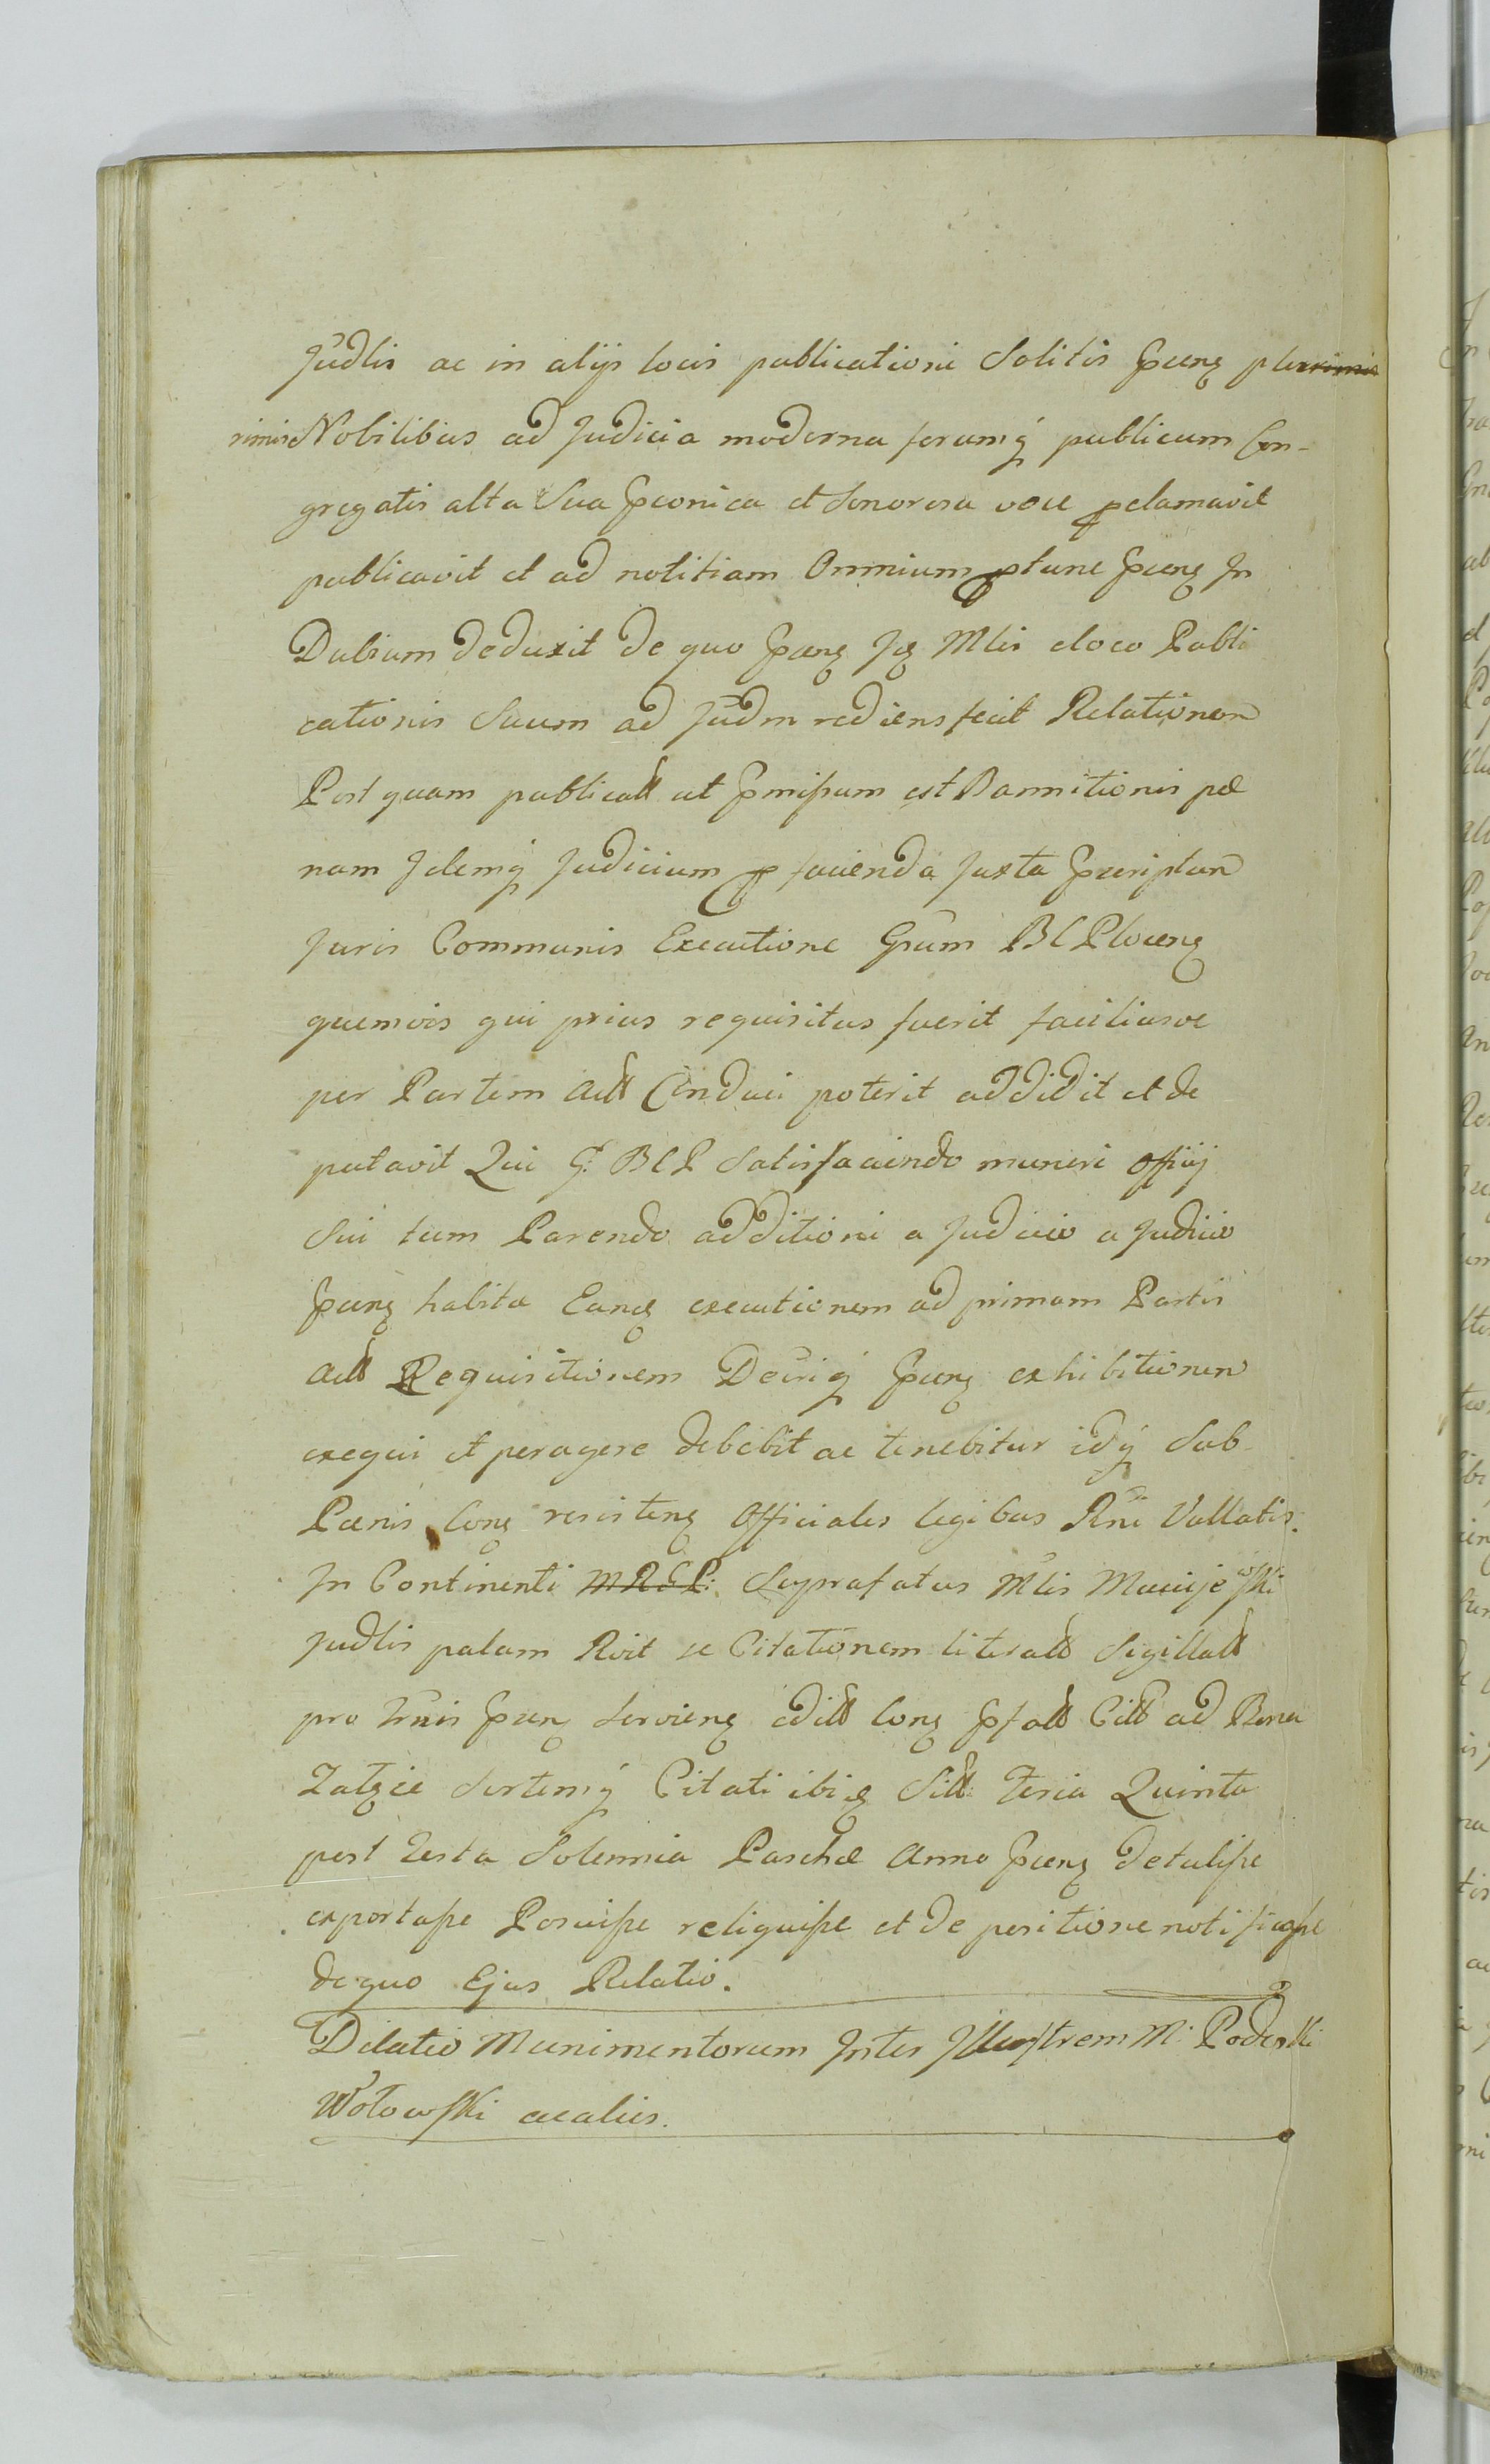 Judlis ac in alijs locis publicationi Solitis pncns plurimis
rimis Nobilibus ad Judicia moderna forumq publicum Con-
gregatis alta Sua pconica et Sonorosa voce pclamavit
publicavit et ad notitiam Omnium ptunc pncns In
Dubium deduxit de quo pncns Idq Mlis eloco Publi
cationis Suum ad Judm rediens fecit Relationem
Post quam publicatt ut pmissum est Bannitionis pæ
nam Idemq Judicium p facienda Juxta pscriptum
Juris Communis Executione Gsum BCPlocens
quemvis qui prius requisitus fuerit faciliusve
per Partem Actt Conduci poterit addidit et de
putavit Qui G: BCP Satisfaciendo muneri Officij
Sui tum Parendo additioni a Judicio a Judicio
pncns habita Eandq executionem ad primam Partis
Actt Requisitionem Decriq pncns exhibitionem
exequi et peragere debebit ac tenebitur idq Sub
Pænis Cong resistens Officiales legibus Rni Vallatis.
In Continenti M R G P: Suprafatus Mlis Maciejewski
Judlis palam Rvit se Citationem literatt Sigillatt
pro Trnis pncns Serviens editt Cong pfatt Citt ad Bona
Zalzie Sortemq Citati ibiq Sitt: Feria Quinta
post Festa Solennia Paschæ Anno pncns detulisse
exportasse Posuisse reliquisse et de positione notificasse
de quo Ejus Relatio.
Dilatio Munimentorum Inter Illustrem M: Podoski
Wołowski acalies.